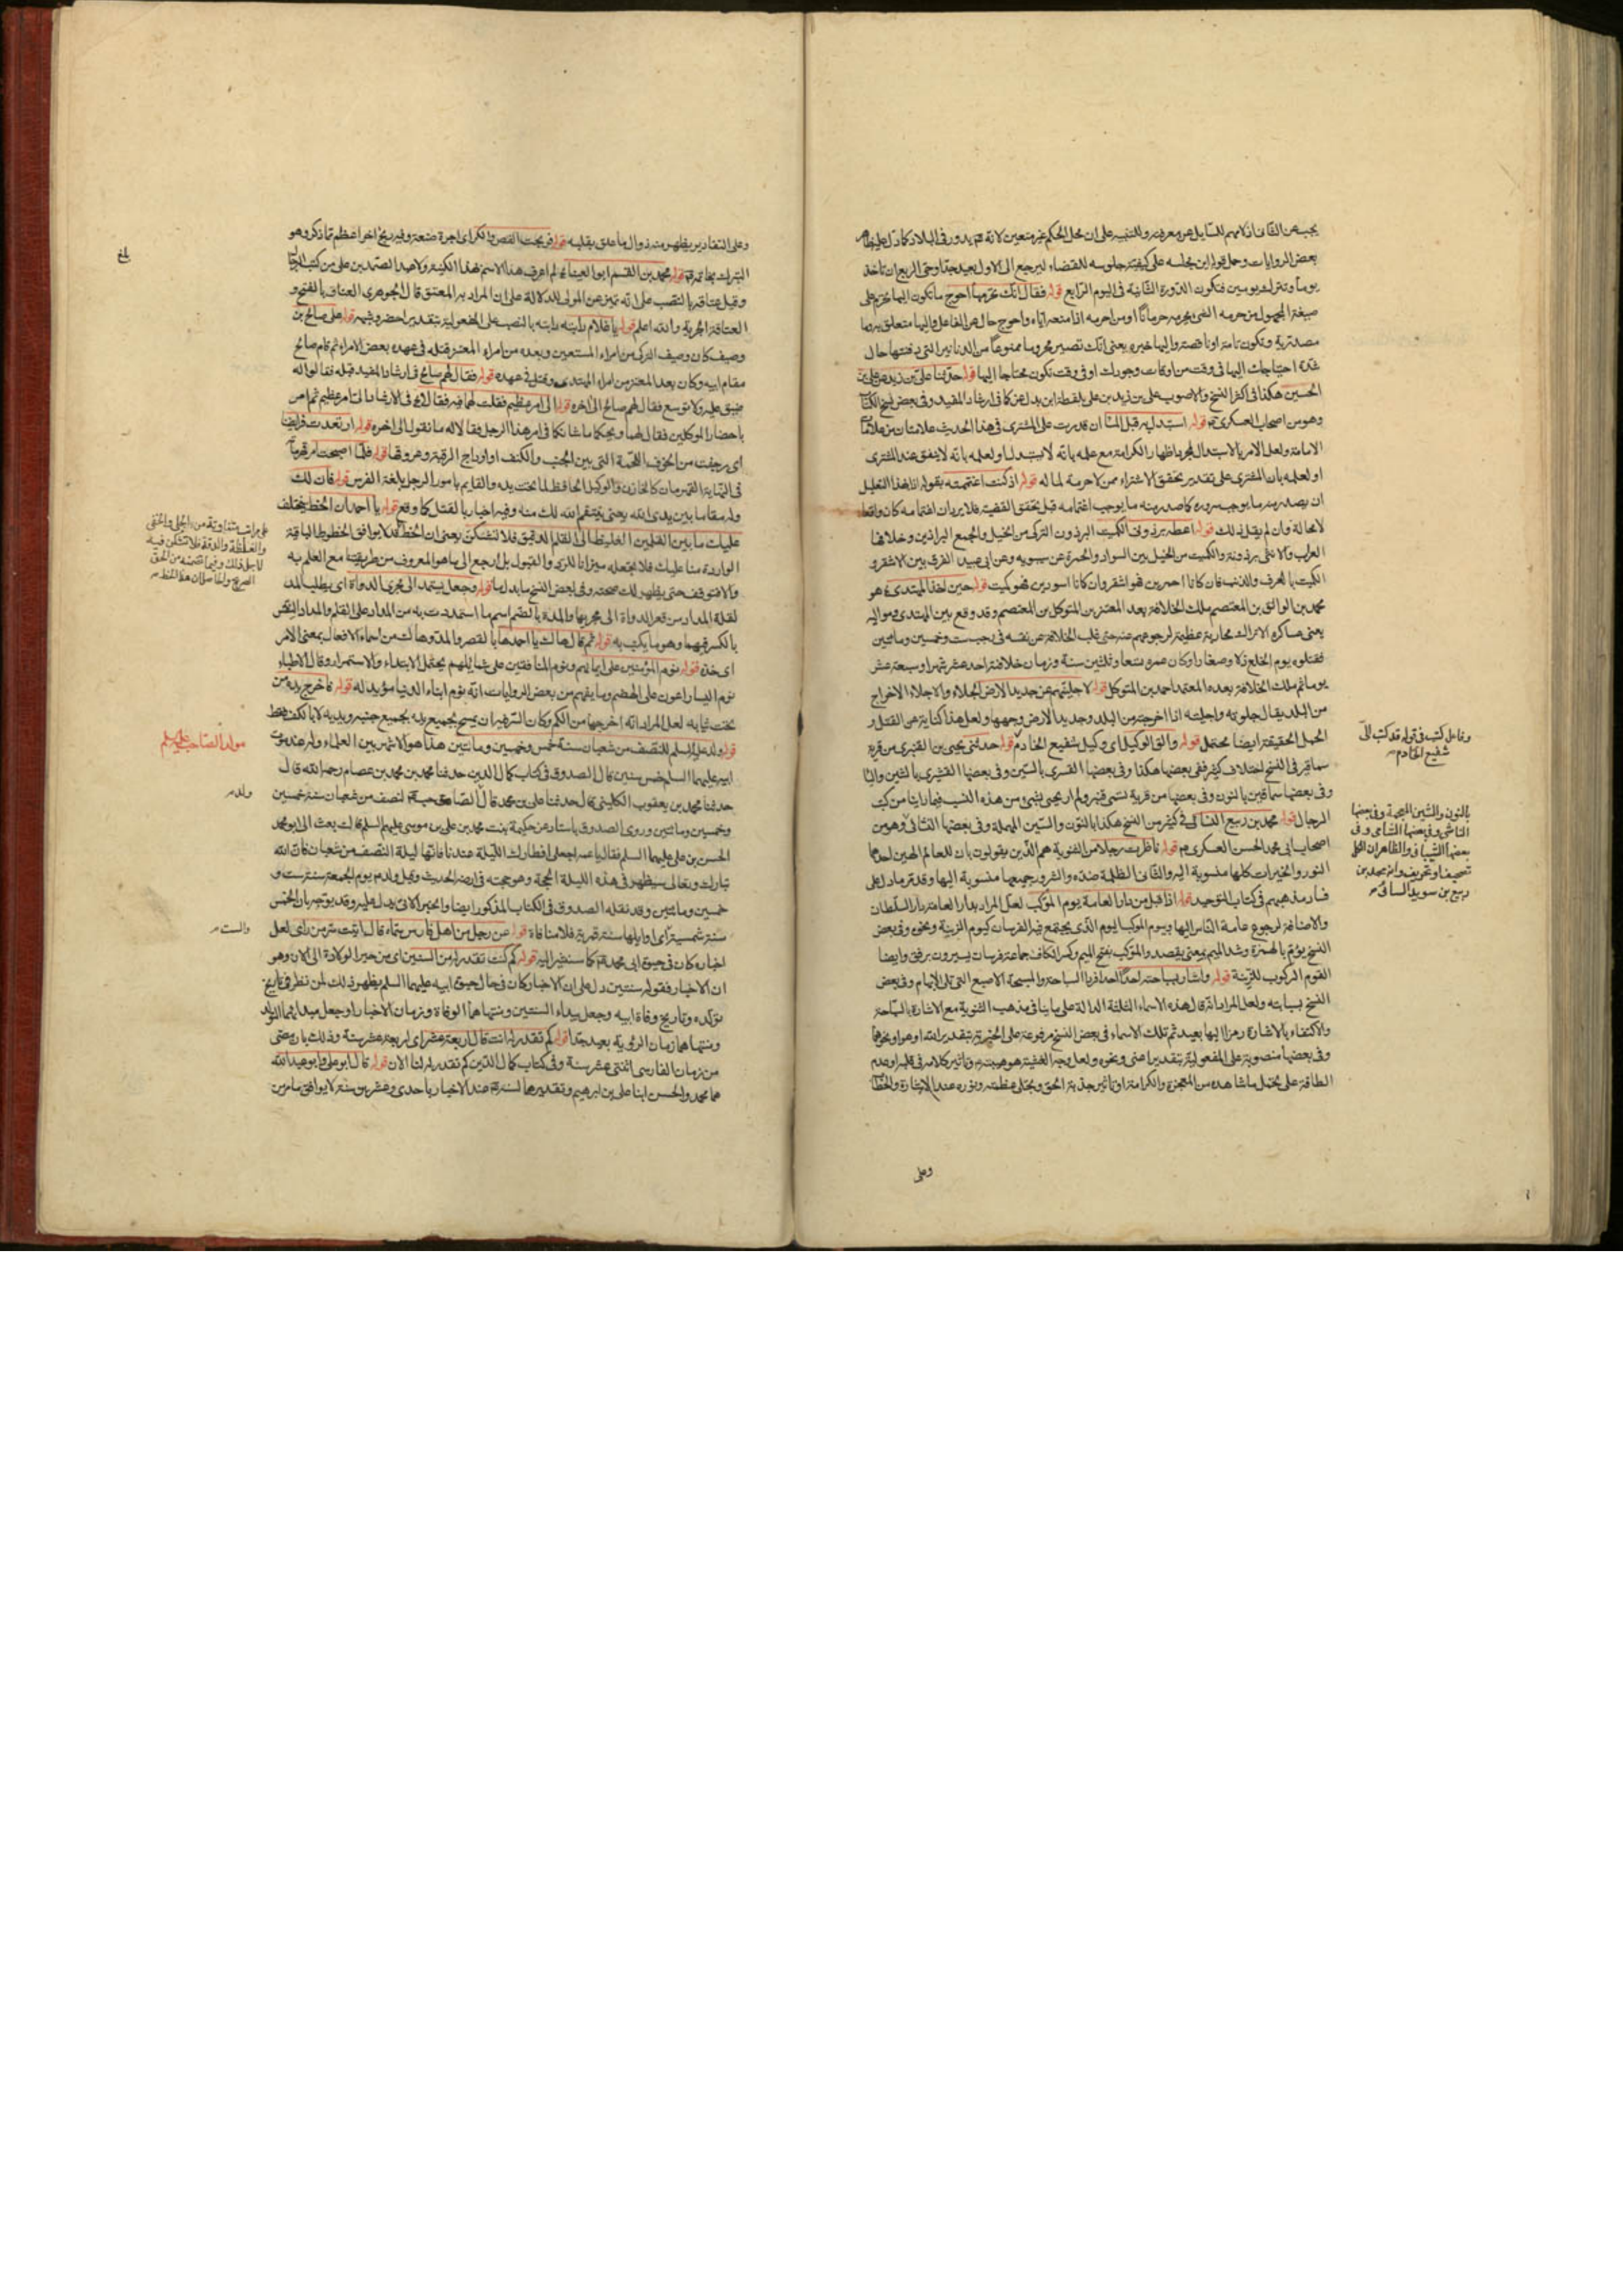 يجبه عن الثاني اذ لا يهم السايل هو معرفته وللتنبيه على ان محل الحكم غير متعين لانه عم يدور في البلاد كما دل عليه
بعض الروايات وحمل قوله اين مجلسه على كيفية جلوسه للقضاء ليرجع الى الاول بعيد جدا وحمى الربع ان تاخذ
يوما وتترك يومين فتكون الدورة الثانية في اليوم الرابع قوله فقال انك تحرمها احوج ما تكون اليها تحرم على
صيغة المجهول من حرمه الشئ يحرمه حرمانا او من احرمه اذا منعه اياه واحوج حال عن الفاعل واليها متعلق به وما
مصدرية وتكون تامة او ناقصة واليها خبره يعني انك تصير محروما ممنوعا من الدنانير التي دفنتها حال
شدة احتياجك اليها في وقت من اوقات وجودك او في وقت تكون محتاجا اليها قوله حدثنا علي بن زيد عن علي بن
الحسين هكذا في اكثر النسخ والاصوب علي بن زيد بن علي بلفظة ابن بدل عن كما في ارشاد المفيد وفي بعض نسخ الكتاب
وهو من اصحاب العسكري عم قوله استبدل به قبل المسا ان قدرت على المشتري في هذا الحديث علامتان من علامات
الامامة ولعل الامر بالاستبدال لمجرد اظهار الكرامة مع علمه بانه لا يستبدل او لعلمه بانه لا يتفق عنده المشتري
او لعلمه بان المشتري على تقدير تحقق الاشتراء ممن لا حرمة لماله قوله اذ كنت اغتممته بقوله
ان يصدر منه ما يوجب سروره كما صدر منه ما يوجب اغتمامه قبل تحقق القضية فلا يرد ان اغتمامه كان واقعا
لا محالة وان لم يقل ذلك قوله اعطه برذوني الكميت البرذون التركي من الخيل والجمع البراذين وخلافها
العراب والانثى برذونة والكميت من الخيل بين السواد والحمرة عن سيبويه وعن ابي عبيد الفرق بين الاشقر و
الكميت بالعرف والذنب فان كانا احمرين فهو اشقر وان كانا اسودين فهو كميت قوله حين اخذ المهتدي هو
محمد بن الواثق بن المعتصم ملك الخلافة بعد المعتز بن المتوكل بن المعتصم وقد وقع بين المهتدي ومواليه
يعني عساكره الاتراك محاربة عظيمة لرجوعهم عنه حتى قلب الخلافة عن نفسه في رجب ست وخمسين ومائتين
فقتلوه يوم الخلع ذلا وصغارا وكان عمره تسعا وثلثين سنة وزمان خلافته احد عشر شهرا وسبعة عشر
يوما ثم ملك الخلافة بعده المعتمد احمد بن المتوكل قوله لاجلينهم عن جديد الارض الجلاء والاجلاء الاخراج
من البلد يقال جلوته واجليته اذا اخرجته من البلد وجديد الارض وجهها ولعل هذا كناية عن القتل و
الحمل الحقيقة ايضا محتمل قوله والق الوكيل اي وكيل شفيع الخادم قوله حدثني يحيى بن القنبري من قرية
سماقير في النسخ اختلاف كثير ففي بعضها هكذا وفي بعضها القسري بالسين وفي بعضها القشيري بالشين واليا
وفي بعضها سماقين بالنون وفي بعضها من قرية تسمى قنبر ولم ار يحيى بشئ من هذه النسب فيما راينا من كتب
الرجال قوله محمد بن ربيع النسائي في كثير من النسخ هكذا بالنون والسين المهملة وفي بعضها الشائي وهو من
اصحاب ابي محمد الحسن العسكري عم قوله ناظرت رجلا من الثنوية هم الذين يقولون بان للعالم الهين احدهما
النور والخيرات كلها منسوبة اليه والثاني الظلمة ضده والشرور جميعها منسوبة اليها وقد مر ما دل على
فساد مذهبهم في كتاب التوحيد قوله اذ اقبل من دار العامة يوم الموكب لعل المراد بدار العامة دار السلطان
والاضافة لرجوع عامة الناس اليها وبيوم الموكب اليوم الذي يجتمع فيه الفرسان كيوم الزينة ونحوه وفي بعض
النسخ يؤم بالهمزة وشد الميم بمعنى يقصد والموكب بفتح الميم وكسر الكاف جماعة فرسان يسيرون برفق وايضا
القوم الركوب للزينة قوله واشار بسباحته احدا احدا فردا السباحة والمسبحة الاصبع التي تلى الابهام وفي بعض
النسخ بسبابته ولعل المراد انه قال هذه الاسماء الثلثة الدالة على ما ينافي مذهب الثنوية مع الاشارة بالسباحة
والاكتفاء بالاشارة رمزا اليها بعيد ثم تلك الاسماء في بعض النسخ مرفوعة على الخبرية بتقدير الله او هو او نحوهما
وفي بعضها منصوبة على المفعولية بتقدير اعني ونحوه ولعل وجه الغشية هو هيبته عم وتاثير كلامه في قلبه او عدم
الطاقة على تحمل ما شاهده من المعجزة والكرامة او تاثير جذبة الحق وتجلي عظمته ونوره عند الاشارة
وعلى
وفاعل كتب في قوله قد كتب الي
شفيع الخادم
بالنون والشين المعجمة وفي بعضها
الناشي وفي بعضها الشامي وفي
بعضها الشيباني والظاهر ان الكل
تصحيف او تحريف وانه محمد بن
ربيع بن سويد السائي
وعلى التقادير يظهر منه زوال ما علق بقلبه قوله فربحت الفص والكراي اجرة صنعته وفيه ربح اخر اعظم مما ذكر وهو
التبرك بخاتمه عم قوله محمد بن القسم ابو العيناء لم اعرف هذا الاسم بهذا الكنية ولا عبد الصمد بن علي من كتب الرجال
وقيل عتاقه بالنصب على انه تميز عن المولى للدلالة على ان المراد به المعتق قال الجوهري العتاق بالفتح و
العتاقة الحرية والله اعلم قوله يا غلام دابته دابته بالنصب على المفعولية بتقدير احضر وشبهه قوله على صالح بن
وصيف كان وصيف التركي من امراء المستعين وبعده من امراء المعتز قتله في عهده بعض الامراء ثم قام صالح
مقام ابيه وكان بعد المعتز من امراء المهتدي وقتل في عهده قوله فقال لهم صالح في ارشاد المفيد قبله فقالوا له
ضيق عليه ولا توسع فقال لهم صالح الى اخره قوله الى امر عظيم فقلت لهما فيه فقال لا في الارشاد الى امر عظيم ثم امر
باحضار الموكلين فقال لهما ويحكما ما شانكما في امر هذا الرجل فقالا له ما نقول الى اخره قوله ارتعدت فرايصنا
اي رجفت من الخوف اللحمة التي بين الجنب والكتف او اوداج الرقبة وعروقها قوله فلما اصبحت امر قهرمانه
في النهاية القهرمان كالخازن والوكيل الحافظ لما تحت يده والقايم بامور الرجل بلغة الفرس قوله فان لك
وله مقاما بين يدي الله يعني ينتقم الله لك منه وفيه اخبار بالقتل كما وقع قوله يا احمد ان الخط يختلف
عليك ما بين القلمين الغليظ الى القلم الدقيق فلا تشكن يعني ان الخط قد لا يوافق الخطوط الباقية
الواردة منا عليك فلا تجعله ميزانا للرد والقبول بل ارجع الى ما هو المعروف من طريقتنا مع العلم به
والا فتوقف حتى يظهر لك صحته وفي بعض النسخ ما بدل اما قوله وجعل يستمد الى مجرى الدواة اي يطلب المد
لقلة المداد من قعر الدواة الى مجريها والمدة بالضم اسم ما استمددت به من المداد على القلم والمداد النقس
بالكسر فيهما وهو ما يكتب به قوله ثم قال هاك يا احمد ها بالقصر والمد وهاك من اسماء الافعال بمعنى الامر
اي خذه قوله نوم المؤمنين على ايمانهم ونوم المنافقين على شمايلهم يحتمل الابتداء والاستمرار وقال الاطباء
نوم اليسار اعون على الهضم وما يفهم من بعض الروايات انه نوم ابناء الدنيا مؤيد له قوله فاخرج يده من
تحت ثيابه لعل المراد انه اخرجها من الكم وكان السر فيه ان يمسح بجميع يده بجميع جنبيه ويديه لا بالكف فقط
قوله ولد عليه السلم للنصف من شعبان سنة خمس وخمسين ومائتين هذا هو الاشهر بين العلماء وله عند موت
ابيه عليهما السلم خمس سنين قال الصدوق في كتاب كمال الدين حدثنا محمد بن محمد بن عصام رحمه الله قال
حدثنا محمد بن يعقوب الكليني قال حدثنا علي بن محمد قال الصاحب عم لنصف من شعبان سنة خمسين
وخمسين ومائتين وروى الصدوق باسناده عن حكيمة بنت محمد بن علي بن موسى عليهم السلم قالت بعث الى ابو محمد
الحسن بن علي عليهما السلم فقال يا عمه اجعلي افطارك الليلة عندنا فانها ليلة النصف من شعبان فان الله
تبارك وتعالى سيظهر في هذه الليلة الحجة وهو حجته في ارضه الحديث وقيل ولد عم يوم الجمعة سنة ست و
خمسين ومائتين وقد نقله الصدوق في الكتاب المذكور ايضا والخبر الاتي يدل عليه وقد يوجه بان الخمس
سنة شمسية اي اوايلها سنة قمرية فلا منافاة قوله عن رجل من اهل فارس سماه قال اتيت سر من راى لعل
اخباره كان في حيوة ابي محمد عم كما سنشير اليه قوله كم كنت تقدر له من السنين اي من حين الولادة الى الان وهو
ان الاخبار فقوله سنتين دل على ان الاخبار كان في حال حيوة ابيه عليهما السلم يظهر ذلك لمن نظر في تاريخ
تولده وتاريخ وفاة ابيه وجعل مبداء السنتين ومنتهاهما الوفاة وزمان الاخبار او جعل مبداءهما التولد
ومنتهاهما زمان الرؤية بعيد جدا قوله كم تقدر له انت قال اربعة عشر اي اربعة عشر سنة وذلك بان مضى
من زمان الفارسي اثنتي عشر سنة وفي كتاب كمال الدين كم تقدر له لنا الان قوله قال ابو علي وابو عبد الله
هما محمد والحسن ابنا علي بن ابرهيم وتقديرهما لسنه عم عند الاخبار باحدى وعشرين سنة لا يوافق ما مر من
بلغ
على مراتب متفاوتة من الجلي والخفي
والغلظة والدقة فلا تشكن فيه
لاجل ذلك وفيما تضمنه من الحق
الصريح والحاصل ان هذا الخط
مولد الصاحب عليه السلم
ولد
والست